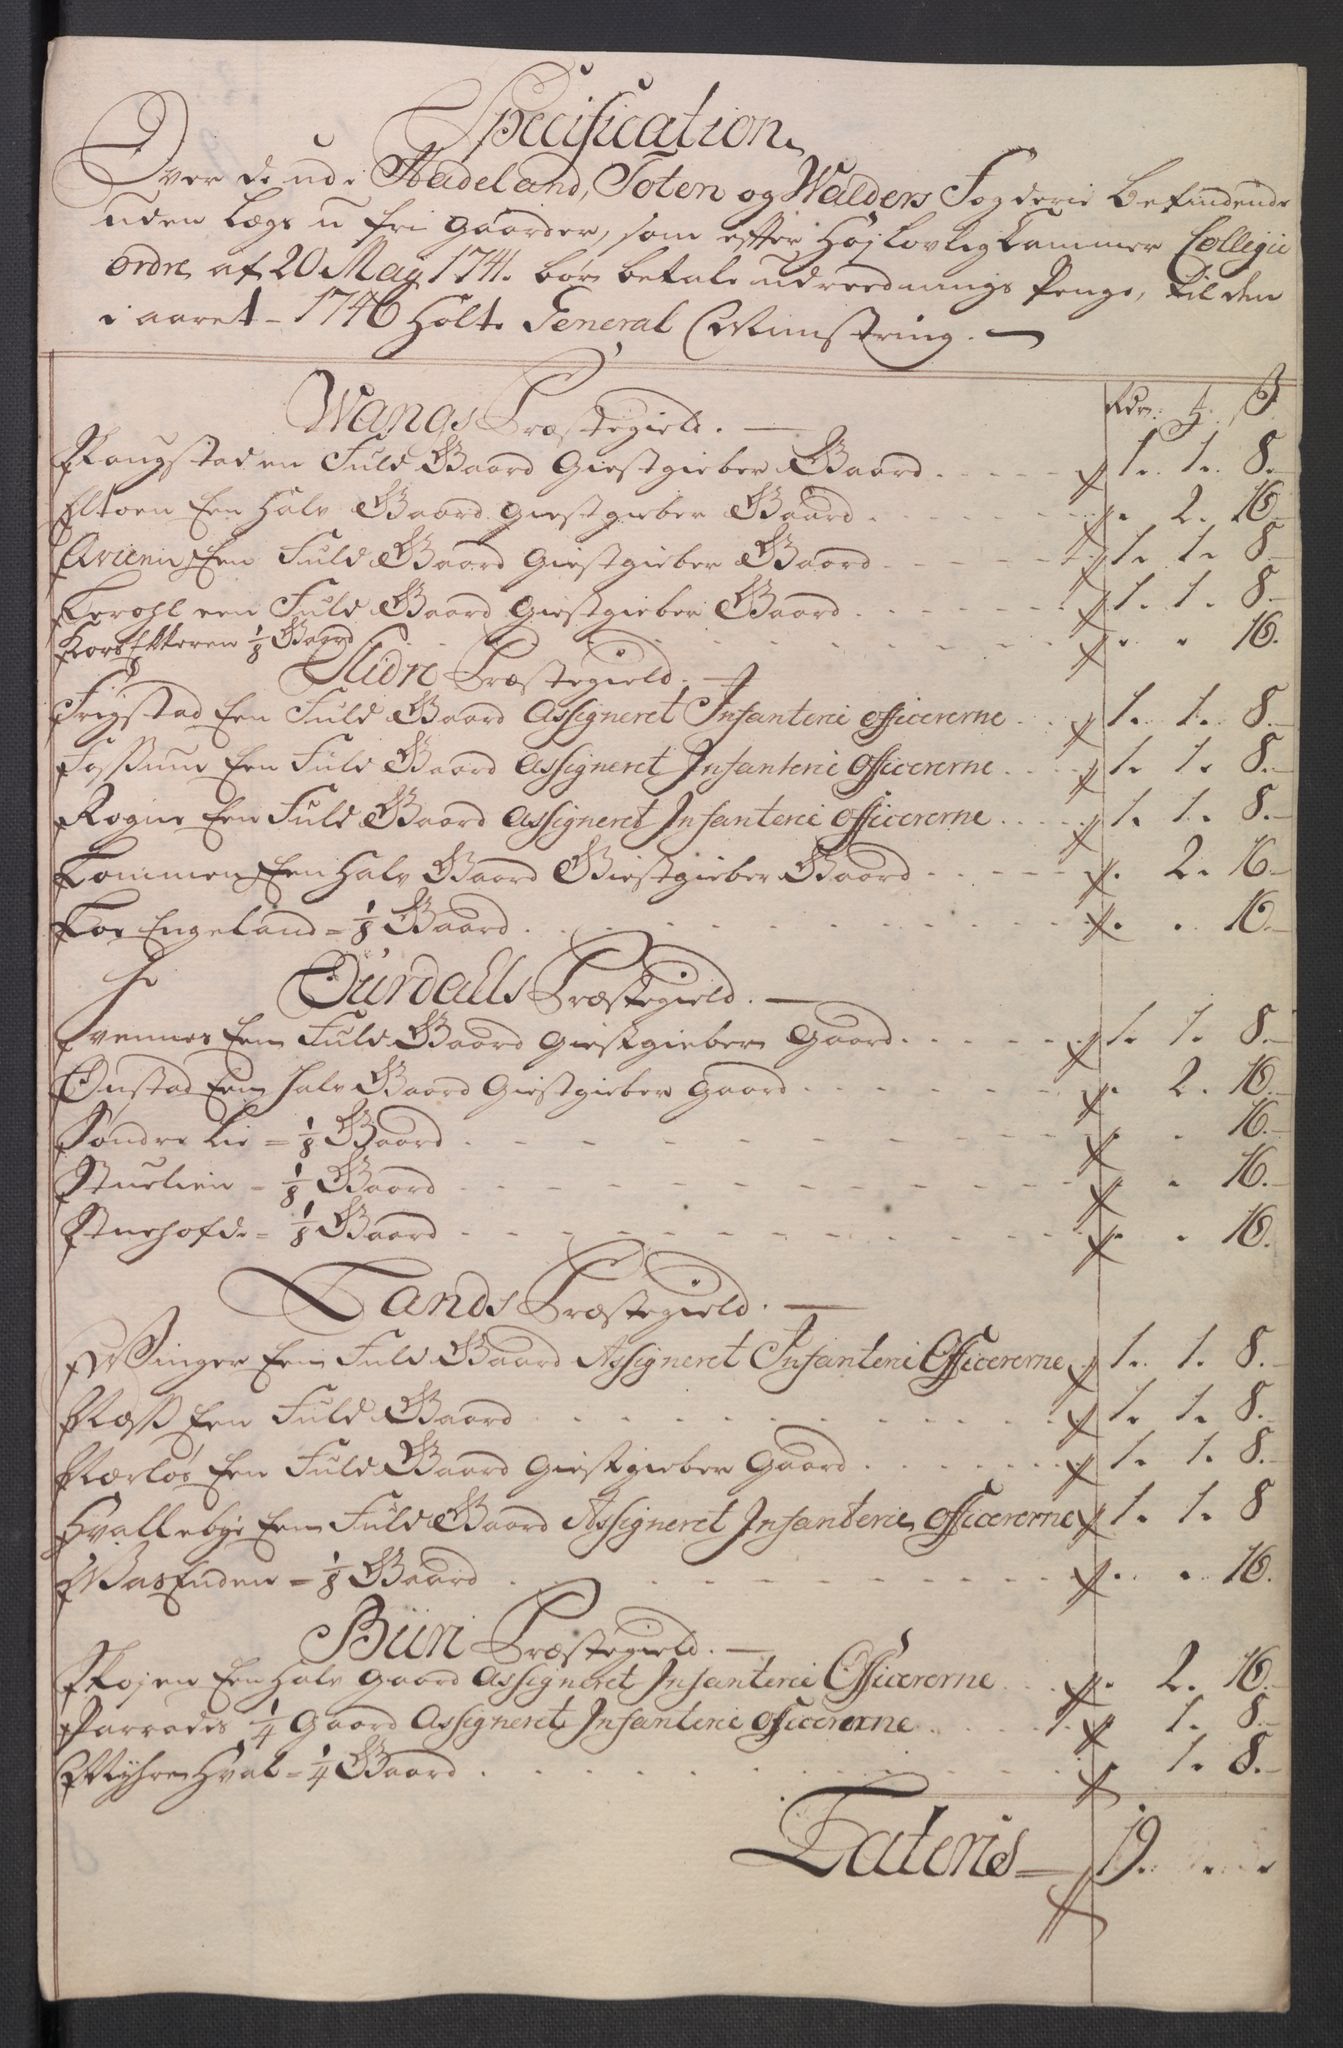 Specification
Over de udi Hadeland, Toten og Walders Fogderie befindende
uden Lægs u fri gaarder, som efter Høylovlig Cammer Collegii
ordre af 20 Maÿ 1741. bør betale udreednings Penge, til den
i aaret 1746 holte General Munstring.
Wangs Præstegield.
Rdr: ¤. ß
en Fuld Gaard Giestgieber Gaard 1. 1. 8.
Eltoen Een Halv Gaard Giestgieber Gaard 2. 16.
Qvienn Een Fuld Gaard Giestgieber Gaard 1. 1. 8.
een Fuld Gaard Giestgieber Gaard 1. 1. 8.
1/8 Gaard 16.
Slidre Præstegield.
Frigstad Een Fuld Gaard Assigneret Infanterie officererne 1. 1. 8.
Een Fuld Gaard Assigneret Infanterie Officererne 1. 1. 8.
Rogne Een Fuld Gaard Assigneret Infanterie officererne 1. 1. 8.
Lommen Een Halv Gaard Giestgieber Gaard 2. 16
Engeland = 1/8 Gaard 16.
Ourdalls Præstegield.
Svennes Een Fuld Gaard Giestgieber Gaard 1. 1. 8.
Onstad Een halv Gaard Giestgieber gaard 2. 16.
Søndre Lie = 1/8 Gaard 16.
Stuelien = 1/8 Gaard 16.
Stuehofde = 1/8 Gaard 16.
Lands Præstegield.
Een Fuld Gaard Assigneret Infanterie Officererne 1. 1. 8.
Næss Een Fuld Gaard 1. 1. 8.
Een Fuld Gaard Giestgieber Gaard 1. 1. 8.
Hvallebye Een Fuld Gaard Assigneret Infanterie officererne 1. 1. 8
WasEnden = 1/8 Gaard 16.
Biiri Præstegield.
Skojen Een Halv gaard Assigneret Infanterie Officererne 2. 16.
1/4 Gaard Assigneret Infanterie officererne 1. 8.
Myhre Hval = 1/4 Gaard 1. 8.
Lateris 19.